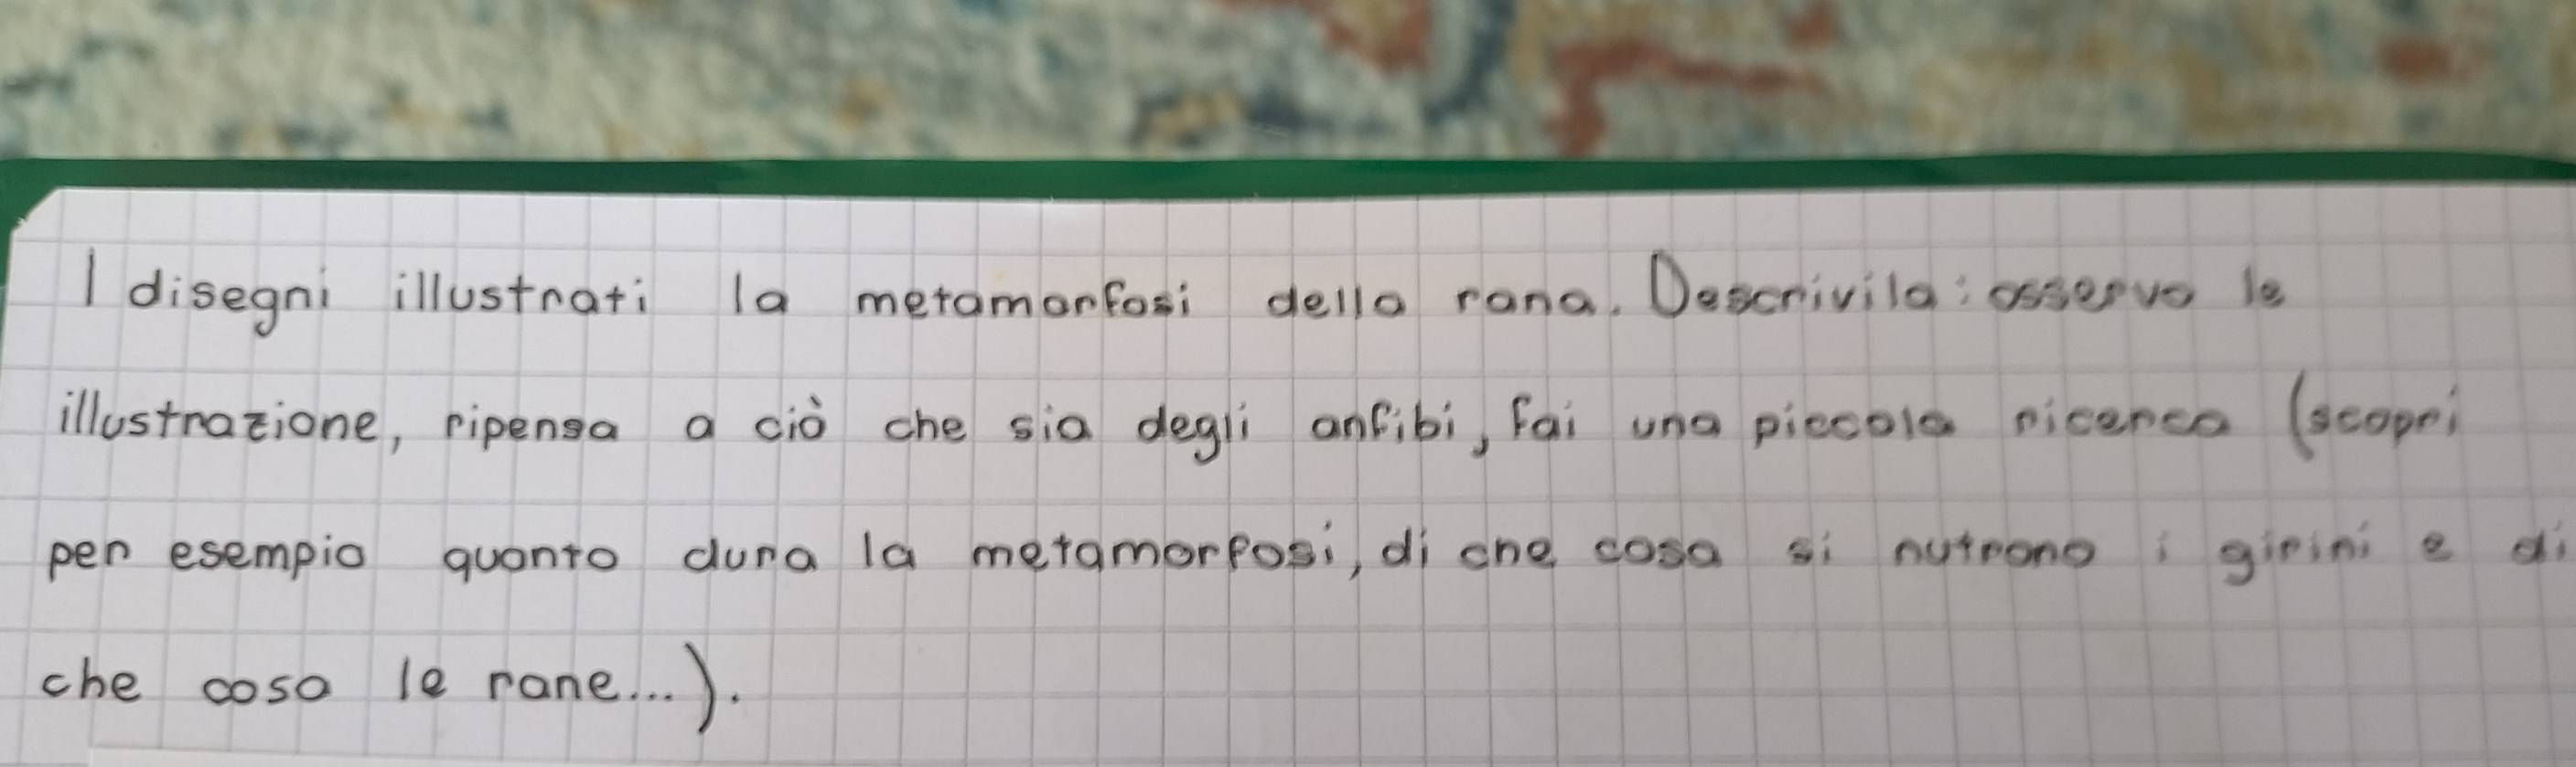 I disegni illustrati la metamorfosi della rana. Descrivila: osserva le
illustrazione, ripensa a ciò che sia degli anfibi, fai una piccola ricerca (scopri
per esempio quanto dura la metamorfosi, di che cosa si nutrono i girini e di
che cosa le rane...).